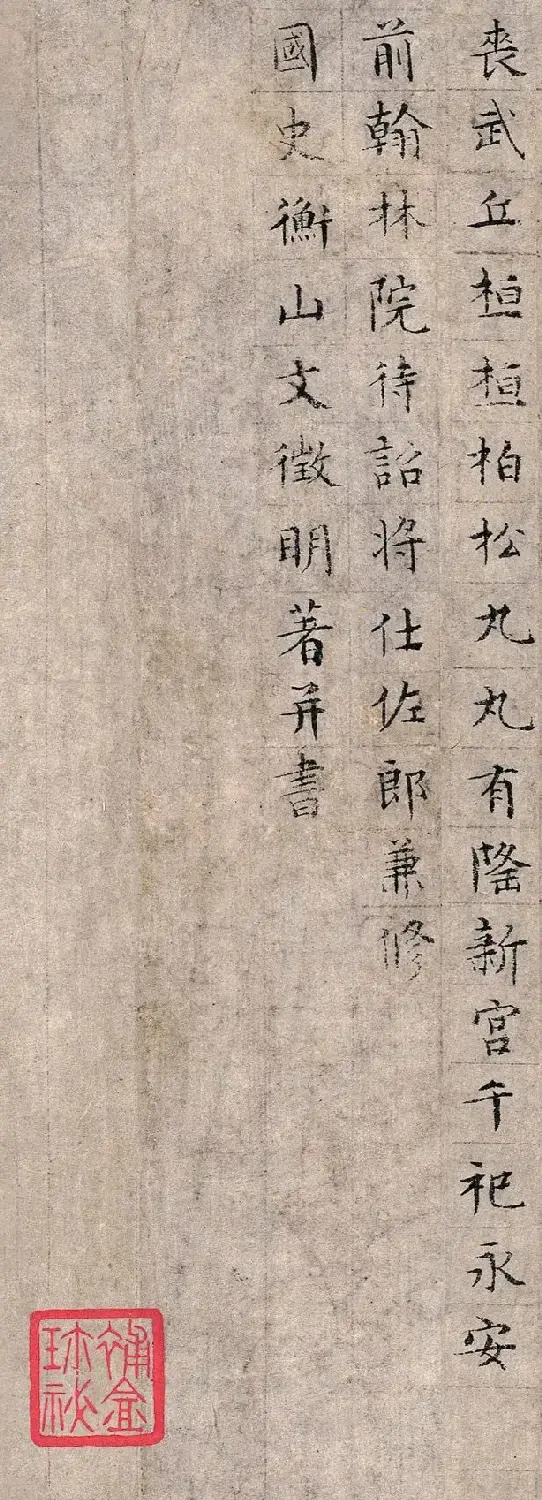 喪武丘桓桓柏松丸丸有隆新宮千祀永安
前翰林院待詔将仕佐郎兼修
國史衡山文徵明著并書
補盦
珎祕